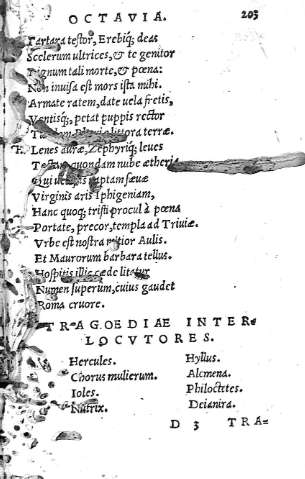 OCTAVIA. 203
Tartara testor, Erebiq; deas
Scelerum ultrices, & te genitor
Dignum tali morte, & pœna:
Non inuisa est mors ista mihi.
Armate ratem, date uela fretis,
Ventisq; petat puppis rector
littora terræ.
Lenes auræ, Zephyriq; leues
quondam nube ætheria
Qui captam sæuæ
Virginis aris Iphigeniam,
Hanc quoq; tristi procul à pœna
Portate, precor, templa ad Triuiæ.
Vrbe est nostra mitior Aulis.
Et Maurorum barbara tellus.
Hospitis illic cæde litatur
Numen superum, ciuis gaudet
Roma cruore.
TRAGOEDIAE INTER-
LOCVTORES.
Hercules. Hyllus.
Chorus mulierum. Alcmena.
Ioles. Philoctetes.
Nutrix. Deianira.
D 3 TRA-